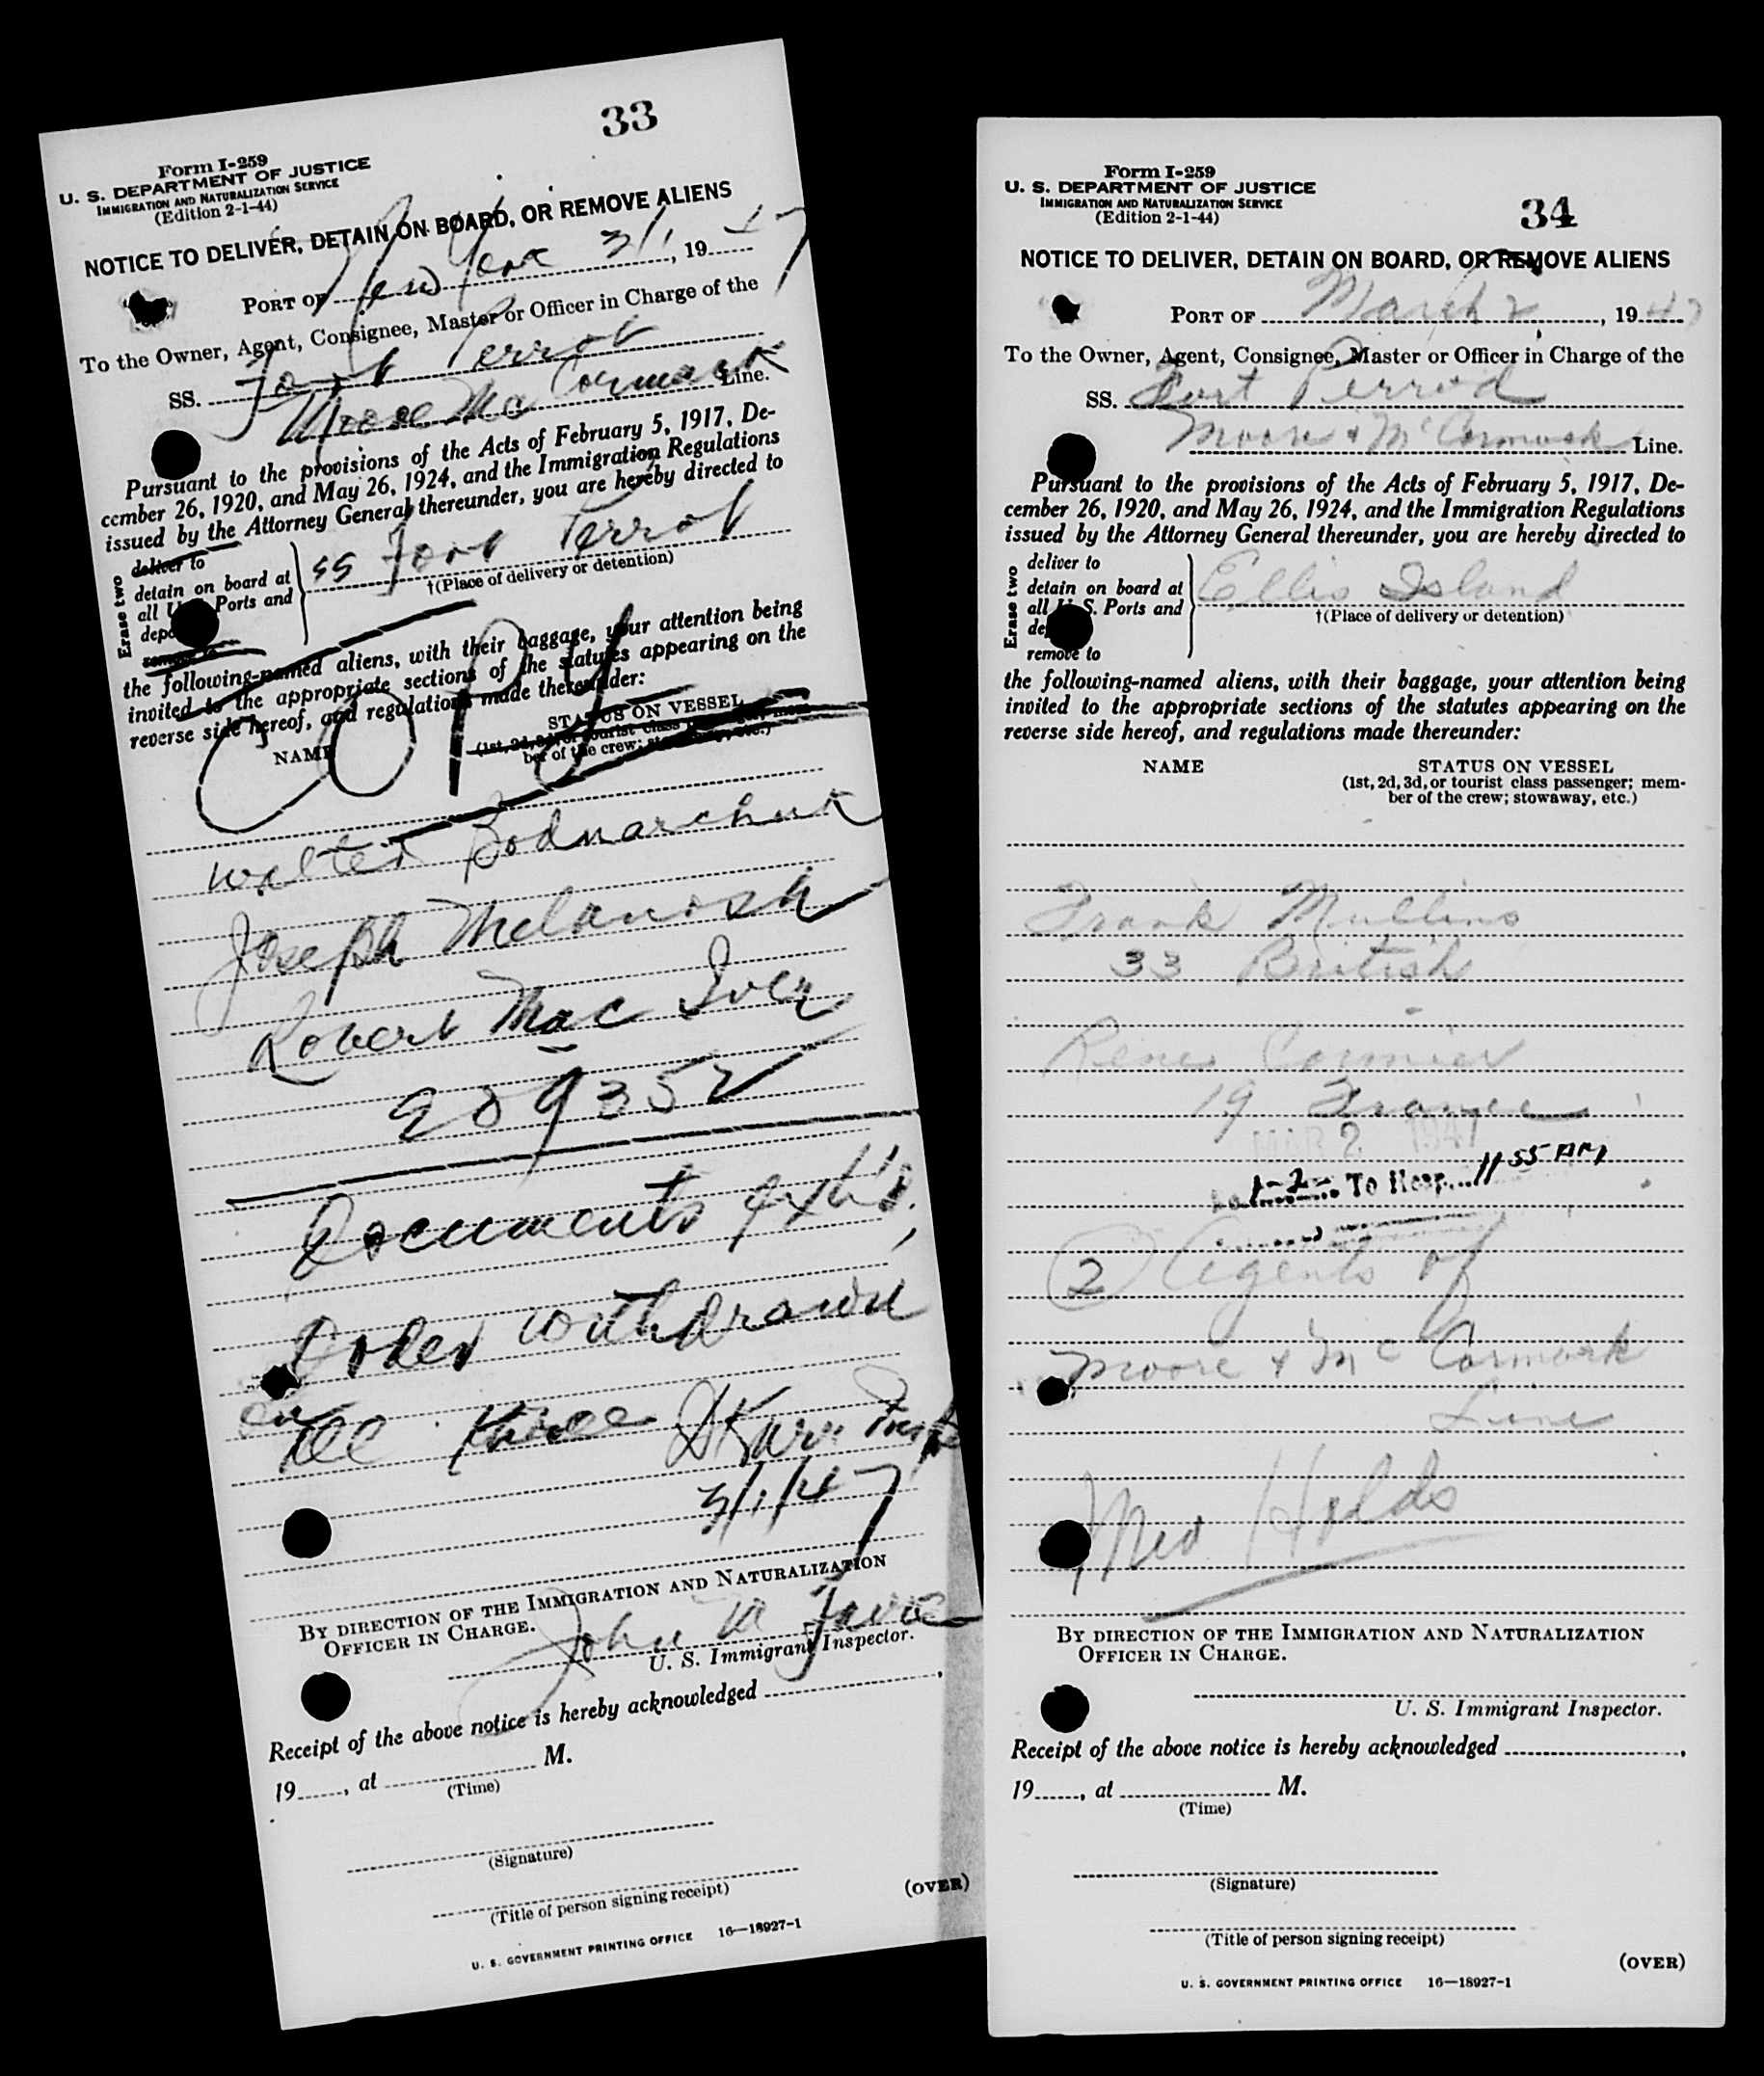 33
Form I-259
U. S. DEPARTMENT OF JUSTICE
IMMIGRATION AND NATURALIZATION SERVICE
(Edition 2-1-44)
NOTICE TO DELIVER, DETAIN ON BOARD, OR REMOVE ALIENS
PORT OF New York 3/1, 1947
To the Owner, Agent, Consignee, Master or Officer in Charge of the
SS. Fort Perrot
Moore Mc Cormack Line.
Pursuant to the provisions of the Acts of February 5, 1917, De-
cember 26, 1920, and May 26, 1924, and the Immigration Regulations
issued by the Attorney General thereunder, you are hereby directed to
Erase two
deliver to
detain on board at
all U. S. Ports and
remove to
SS Fort Perrot
†(Place of delivery or detention)
the following-named aliens, with their baggage, your attention being
invited to the appropriate sections of the statutes appearing on the
reverse side hereof, and regulations made thereunder:
COPY
NAME
STATUS ON VESSEL
(1st, 2d, 3d, or tourist class passenger; mem-
ber of the crew; stowaway, etc.)
Walter Bodnarchuk
Joseph Melanish
Robert Mac Iver
209352
Documents exh'd,
Order withdrawn
on
all three
3/1/47
BY DIRECTION OF THE IMMIGRATION AND NATURALIZATION
OFFICER IN CHARGE.
John M
U. S. Immigrant Inspector.
Receipt of the above notice is hereby acknowledged ,
19 , at M.
(Time)
(Signature)
(Title of person signing receipt)
(OVER)
U. S. GOVERNMENT PRINTING OFFICE 16—18927-1
Form I-259
U. S. DEPARTMENT OF JUSTICE
IMMIGRATION AND NATURALIZATION SERVICE
(Edition 2-1-44)
34
NOTICE TO DELIVER, DETAIN ON BOARD, OR REMOVE ALIENS
PORT OF March 2, 1947
To the Owner, Agent, Consignee, Master or Officer in Charge of the
SS. Fort Perrod
Moore & McCormack Line.
Pursuant to the provisions of the Acts of February 5, 1917, De-
cember 26, 1920, and May 26, 1924, and the Immigration Regulations
issued by the Attorney General thereunder, you are hereby directed to
Erase two
deliver to
detain on board at
all U. S. Ports and
remove to
Ellis Island
†(Place of delivery or detention)
the following-named aliens, with their baggage, your attention being
invited to the appropriate sections of the statutes appearing on the
reverse side hereof, and regulations made thereunder:
NAME
STATUS ON VESSEL
(1st, 2d, 3d, or tourist class passenger; mem-
ber of the crew; stowaway, etc.)
Frank Mullins
33 British
Rene Cormier
19 France
MAR 2 1947
1-2- To Hosp. 11 55 AM
2 Agents of
Moore & Mc Cormack
Line
Med Holds
BY DIRECTION OF THE IMMIGRATION AND NATURALIZATION
OFFICER IN CHARGE.
U. S. Immigrant Inspector.
Receipt of the above notice is hereby acknowledged ,
19 , at M.
(Time)
(Signature)
(Title of person signing receipt)
(OVER)
U. S. GOVERNMENT PRINTING OFFICE 16—18927-1